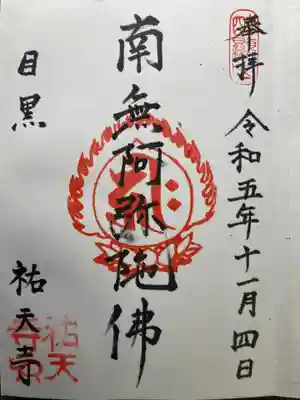 奉拝
令和五年十一月四日
南無阿弥陀佛
目黒
祐天寺
祐天
寺